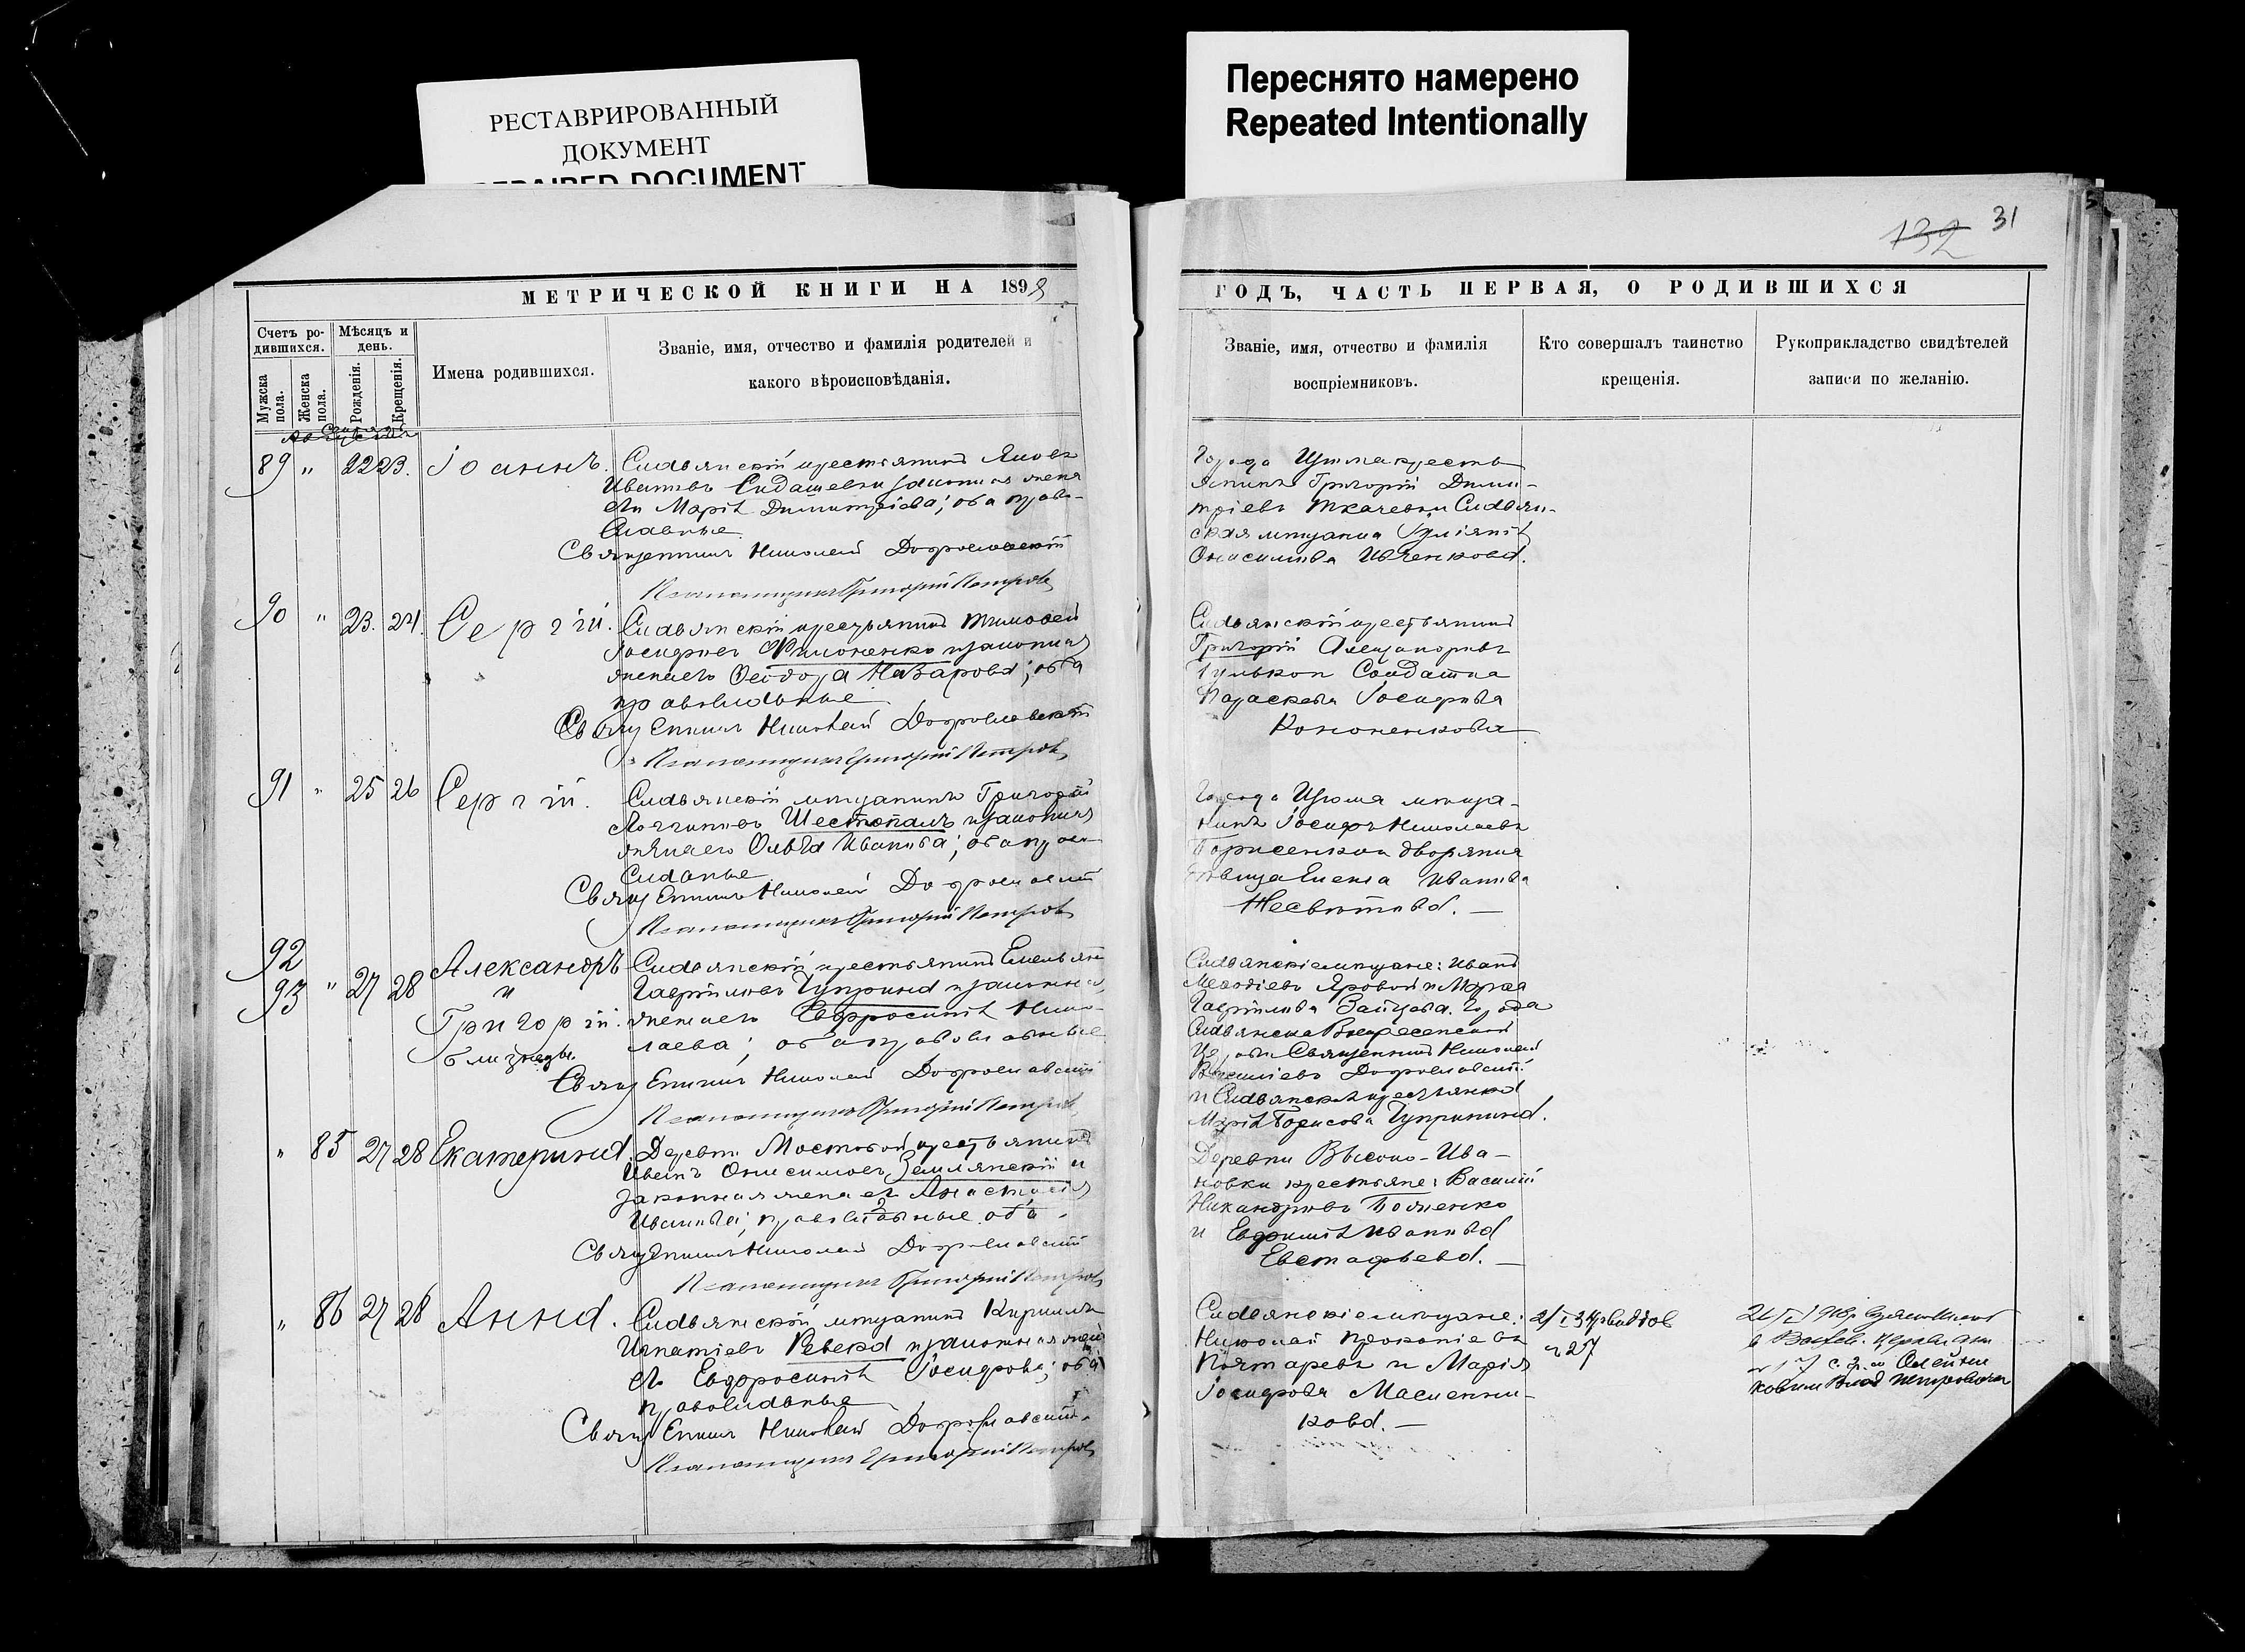 РЕСТАВРИРОВАННЫЙ
ДОКУМЕНТ
REPAIRED DOCUMENT
Переснято намерено
Repeated Intentionally
132 31
МЕТРИЧЕСКОЙ КНИГИ НА 1898
Счетъ ро-
дившихся.
Мѣсяцъ и
день.
Мужска
пола.
Женска
пола.
Рожденія.
Крещенія.
Имена родившихся.
Званіе, имя, отчество и фамилія родителей и
какого вѣроисповѣданія.
89 " 22 23. Іоаннъ.
Славянскій крестьянинъ Яковъ
Ивановъ Сидашевъ и законная жена
его Марія Димитріева; оба право-
славные
Священникъ Николай Доброславскій
Псаломщикъ Григорій Петровъ
90 " 23. 24. Сергій.
Славянскій крестьянинъ Тимоѳей
Іосифовъ Филоненко и законная
жена его Ѳеодора Назарова; оба
православные
Священникъ Николай Доброславскій
Псаломщикъ Григорій Петровъ
91 " 25 26 Сергій.
Славянскій мѣщанинъ Григорій
Логгиновъ Шестопалъ и законная
жена его Ольга Иванова; оба право-
славные
Священникъ Николай Доброславскій
Псаломщикъ Григорій Петровъ
92
93 " 27 28
Александръ
и
Григорій.
близнецы.
Славянскій крестьянинъ Емельянъ
Гавріиловъ Чуприна и законная
жена его Евфросинія Нико-
лаева; оба православные
Священникъ Николай Доброславскій
Псаломщикъ Григорій Петровъ
" 85 27 28 Екатерина.
Деревни Мостовой крестьянинъ
Иванъ Онисимовъ Землянскій и
законная жена его Анастасія
Иванова; православные оба.
Священникъ Николай Доброславскій
Псаломщикъ Григорій Петровъ
" 86 27 28 Анна.
Славянскій мѣщанинъ Кириллъ
Игнатіевъ Ревека и законная жена
его Евфросинія Іосифова; оба
православные
Священникъ Николай Доброславскій.
Псаломщикъ Григорій Петровъ
ГОДЪ, ЧАСТЬ ПЕРВАЯ, О РОДИВШИХСЯ
Званіе, имя, отчество и фамилія
воспріемниковъ.
Кто совершалъ таинство
крещенія.
Рукоприкладство свидѣтелей
записи по желанію.
Города Изюма кресть-
янинъ Григорій Дими-
тріевъ Ткачевъ и Славян-
ская мѣщанка Іуліанія
Онисимова Ивченкова.
Славянскій крестьянинъ
Григорій Александровъ
Гулько и Солдатка
Параскева Іосифова
Кононенкова
Города Изюма мѣща-
нинъ Іосифъ Николаевъ
Борисенко и дворянка
дѣвица Елена Иванова
Несвѣтова. —
Славянскіе мѣщане: Иванъ
Меѳодіевъ Яровой и Марѳа
Гавріилова Зайцева. Города
Славянска Воскресенской
Церкви Священникъ Николай
Василіевъ Доброславскій.
и Славянская крестьянка
Марія Борисова Чуприна.
Деревни Высоко-Ива-
новки крестьяне: Василій
Никандровъ Боженко
и Евфимія Иванова
Евстафьева. —
Славянскіе мѣщане:
Николай Прокопіевъ
Коятаревъ и Марія
Іосифова Маслени-
кова. —
№ 27